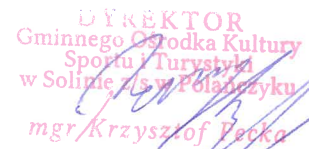 DYREKTOR
Gminnego Ośrodka Kultury
Sportu i Turystyki
w Solinie z/s w Polańczyku
mgr Krzysztof Pecka